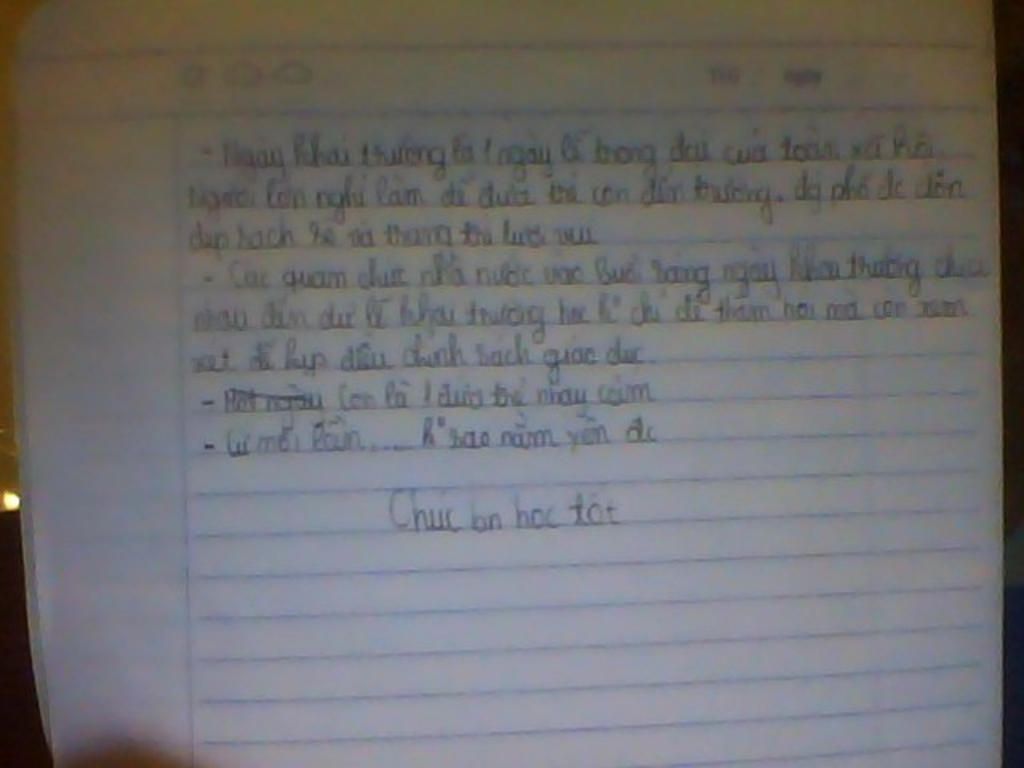 Thứ ngày
- Ngày khai trường là 1 ngày lễ trọng đại của toàn xã hội
Người lớn nghỉ làm để đưa trẻ con đến trường, đg phố đc dọn
dẹp sạch sẽ và trang trí tươi vui
- Các quan chức nhà nước vào buổi sáng ngày khai trường chia
nhau đến dự lễ khai trường k° chỉ để thăm hỏi mà còn xem
xét để kịp điều chỉnh sách giáo dục
- Một ngày Con là 1 đứa trẻ nhạy cảm
- Cứ mỗi lần.... k° sao nằm yên đc
Chúc bn học tốt